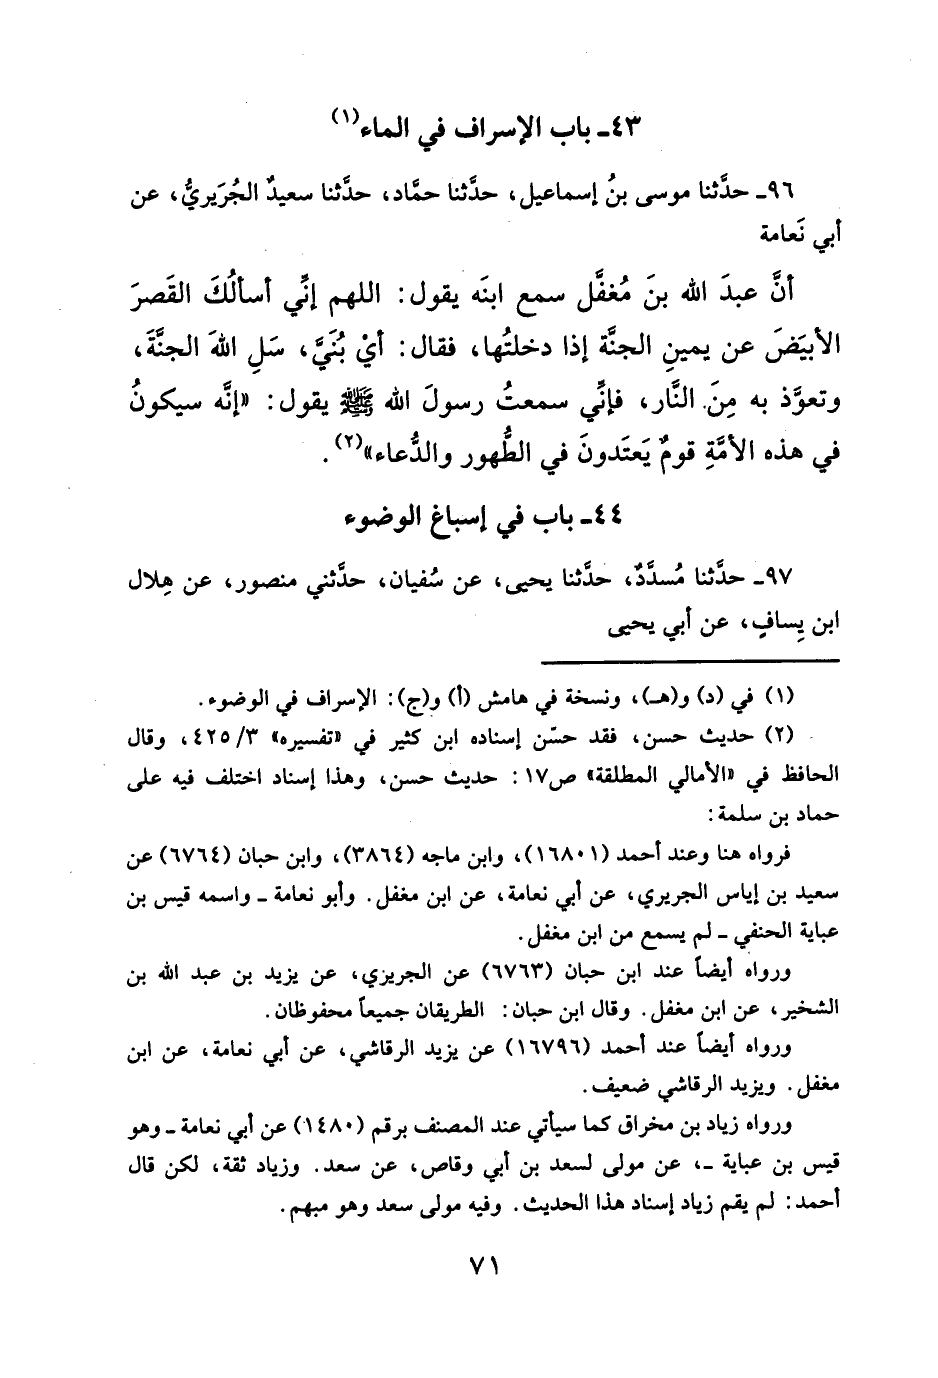 ٤٣ـ باب الإسراف في الماء(١)
٩٦ـ حدَّثنا موسى بنُ إسماعيل، حدَّثنا حمَّاد، حدَّثنا سعيدٌ الجُرَيريُّ، عن
أبي نَعامة
أنَّ عبدَ الله بنَ مُغفَّل سمع ابنَه يقول: اللهم إنِّي أسألُكَ القَصرَ
الأبيَضَ عن يمينِ الجنَّة إذا دخلتُها، فقال: أيْ بُنَيَّ، سَلِ اللهَ الجنَّةَ،
وتعوَّذ به مِنَ النَّار، فإنِّي سمعتُ رسولَ الله ﷺ يقول: «إنَّه سيكونُ
في هذه الأمَّةِ قومٌ يَعتَدونَ في الطُّهور والدُّعاء»(٢).
٤٤ـ باب في إسباغ الوضوء
٩٧ـ حدَّثنا مُسدَّدٌ، حدَّثنا يحيى، عن سُفيان، حدَّثني منصور، عن هِلال
ابن يِسافٍ، عن أبي يحيى
(١) في (د) و(هـ)، ونسخة في هامش (أ) و(ج): الإسراف في الوضوء.
(٢) حديث حسن، فقد حسّن إسناده ابن كثير في «تفسيره» ٣/ ٤٢٥، وقال
الحافظ في «الأمالي المطلقة» ص١٧: حديث حسن، وهذا إسناد اختلف فيه على
حماد بن سلمة:
فرواه هنا وعند أحمد (١٦٨٠١)، وابن ماجه (٣٨٦٤)، وابن حبان (٦٧٦٤) عن
سعيد بن إياس الجريري، عن أبي نعامة، عن ابن مغفل. وأبو نعامة ـ واسمه قيس بن
عباية الحنفي ـ لم يسمع من ابن مغفل.
ورواه أيضاً عند ابن حبان (٦٧٦٣) عن الجريزي، عن يزيد بن عبد الله بن
الشخير، عن ابن مغفل. وقال ابن حبان: الطريقان جميعاً محفوظان.
ورواه أيضاً عند أحمد (١٦٧٩٦) عن يزيد الرقاشي، عن أبي نعامة، عن ابن
مغفل. ويزيد الرقاشي ضعيف.
ورواه زياد بن مخراق كما سيأتي عند المصنف برقم (١٤٨٠) عن أبي نعامة ـ وهو
قيس بن عباية ـ، عن مولى لسعد بن أبي وقاص، عن سعد. وزياد ثقة، لكن قال
أحمد: لم يقم زياد إسناد هذا الحديث. وفيه مولى سعد وهو مبهم.
٧١